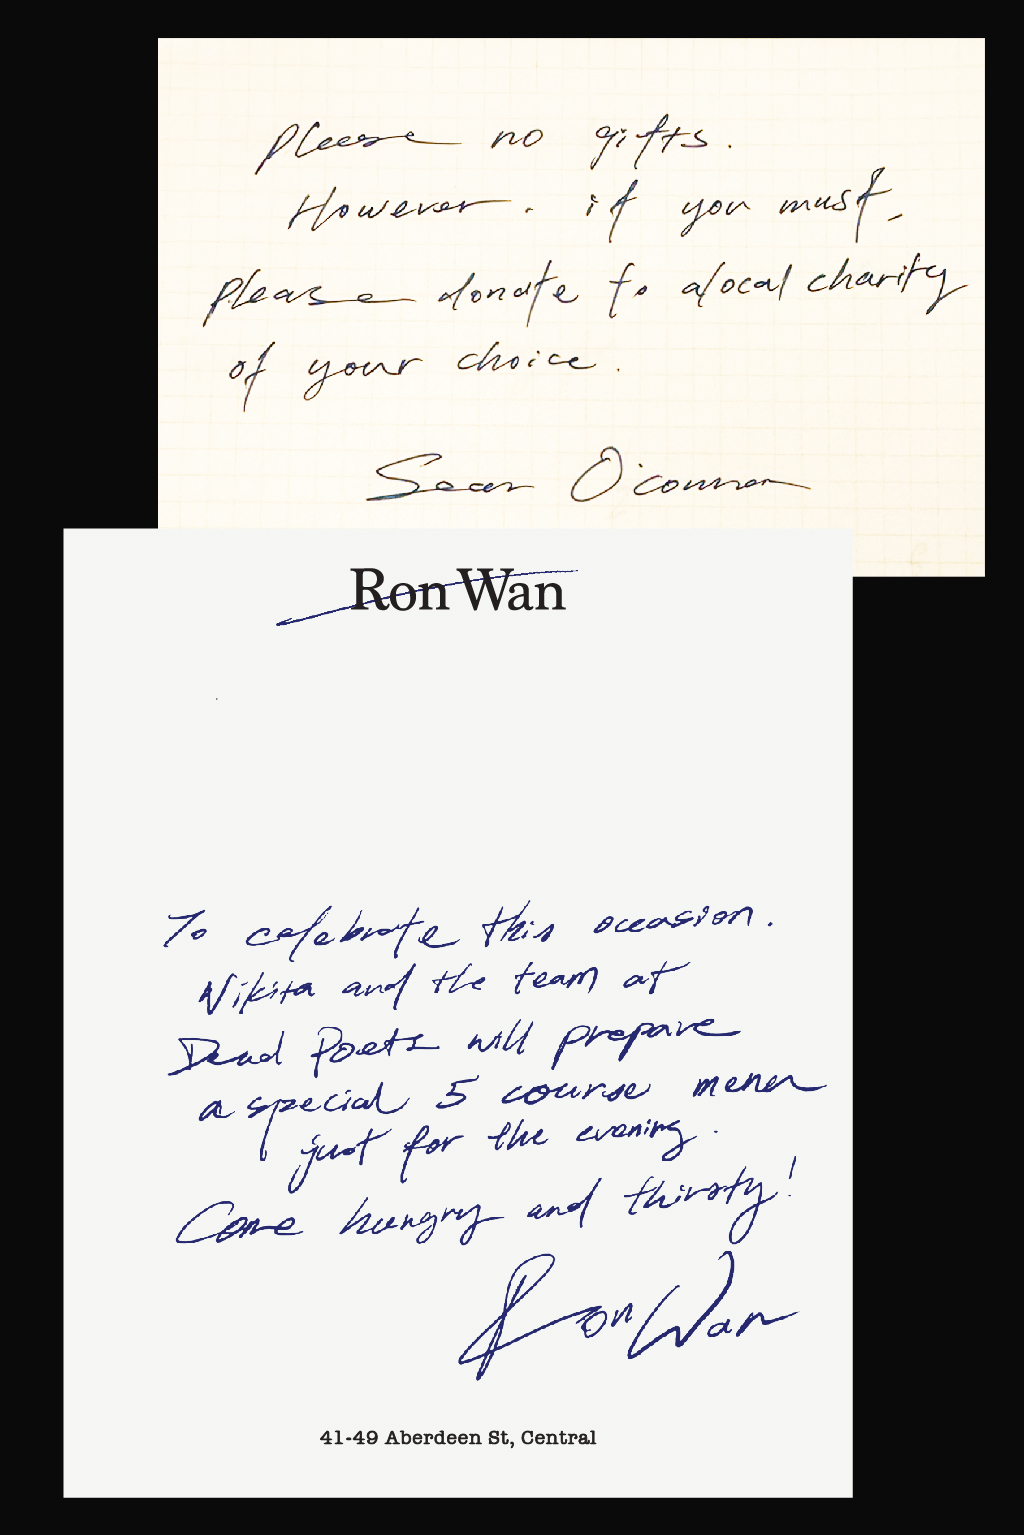 please no gifts.
However. if you must,
please donate to a local charity
of your choice.
Sean O'connor
Ron Wan
To celebrate this occasion.
Nikita and the team at
Dead Poets will prepare
a special 5 course menu
just for the evening.
Come hungry and thirsty!
Ron Wan
41-49 Aberdeen St, Central